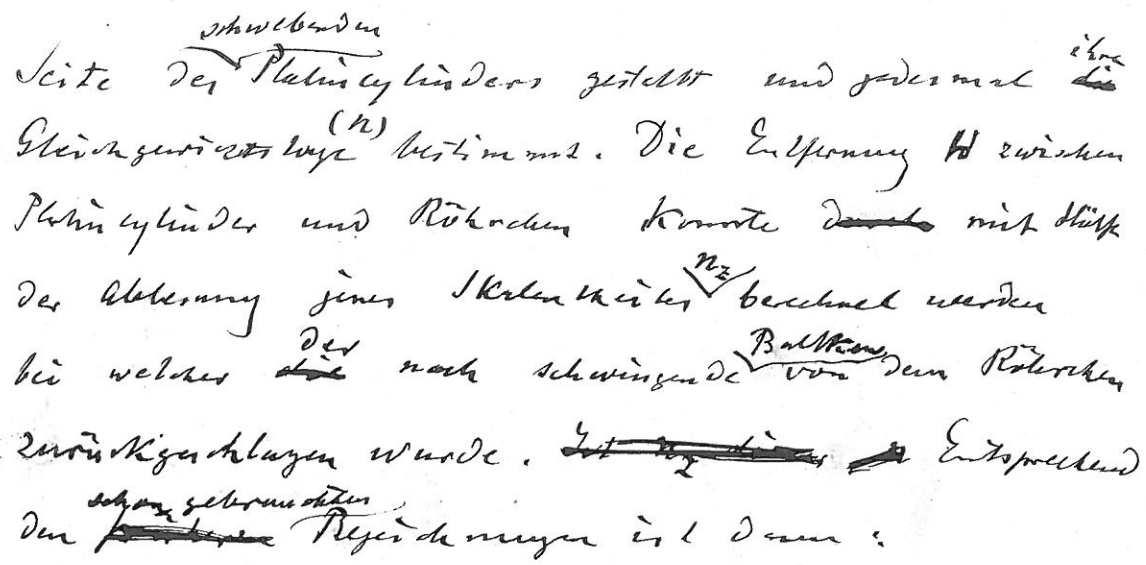 schwebenden
Seite des Platincylinders gestellt und jedesmal ihre
Gleichgewichtslage (n) bestimmt. Die Entfernung H zwischen
Platincylinder und Röhrchen konnte durch mit Hülfe
der Ablesung jenes Skalentheiles n_z berechnet werden
bei welcher die der noch schwingende Balken von dem Röhrchen
zurückgeschlagen wurde. Ist n_z dieser Entsprechend
schon gebrauchten
den Bezeichnungen ist dann: